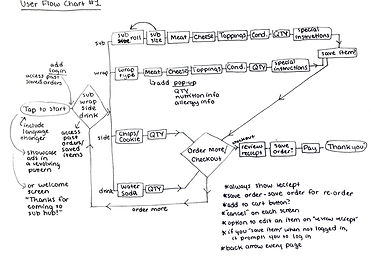 User Flow Chart #1
sub
sub roll
sub size
Meat
Cheese
Toppings
Cond.
QTY
special instructions
save item?
wrap
wrap type
Meat
Cheese
Toppings
Cond.
QTY
special instructions
add pop-up
QTY
nutrition info
allergy info
add log in
access past
saved orders
Tap to start
sub
wrap
side
drink
include
language
changer
access
past
orders/
saved
items
showcase
ads in
a revolving
pattern
or welcome
screen
"Thanks for
coming to
sub hub!"
side
Chips/
Cookie
QTY
drink
Water
Soda
QTY
order more
Order More/
Checkout
checkout
review
reciept
save
order?
Pay
Thank you!
*always show reciept
*save order - save order for re-order
*add to cart button?
*"cancel" on each screen
*option to edit an item on "review reciept"
*if you "save item" when not logged in,
it prompts you to log in
*back arrow every page